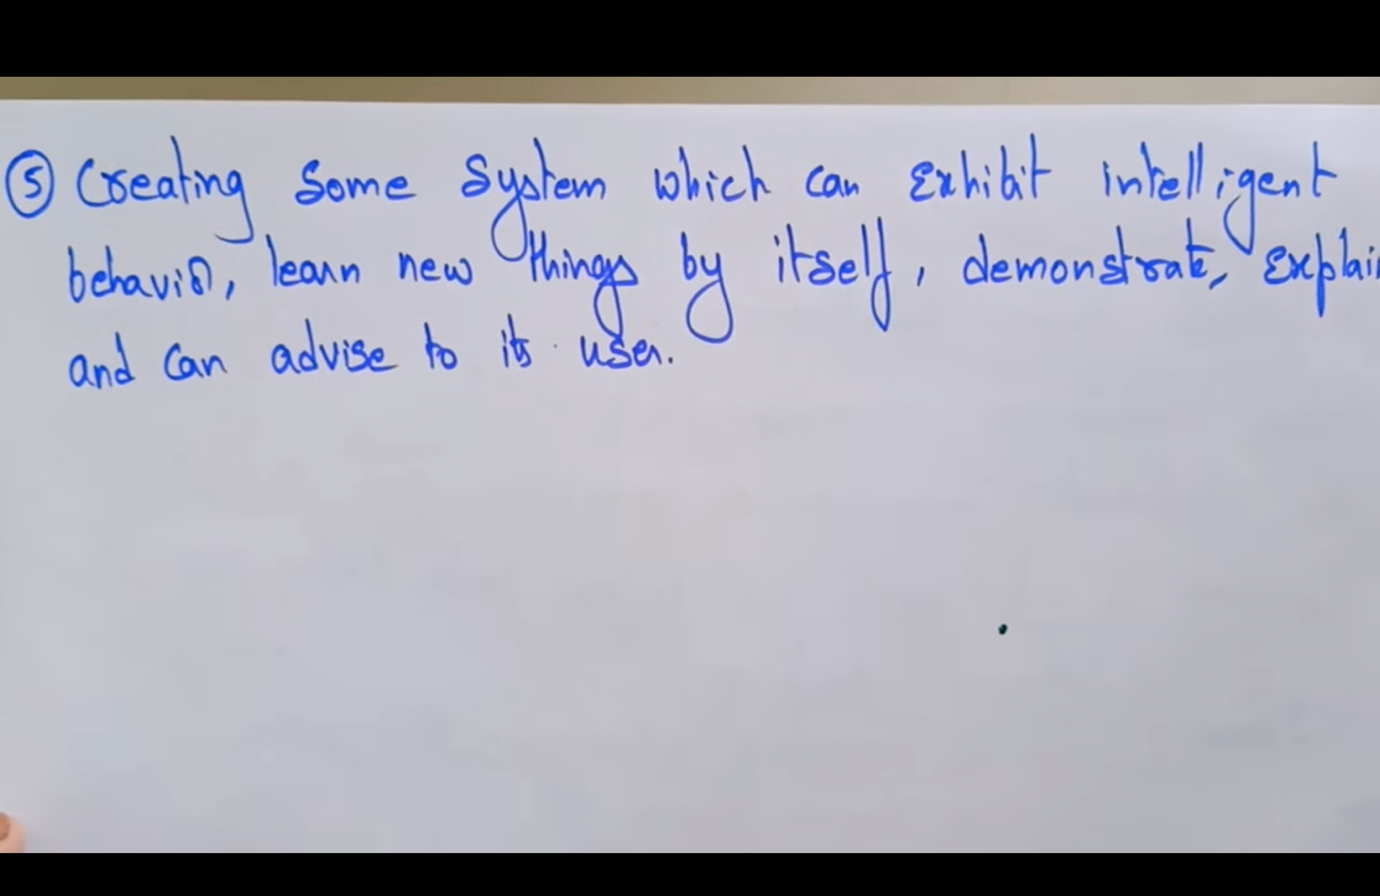 ⑤ Creating some system which can exhibit intelligent
behavior, learn new things by itself, demonstrate, explai
and can advise to its user.